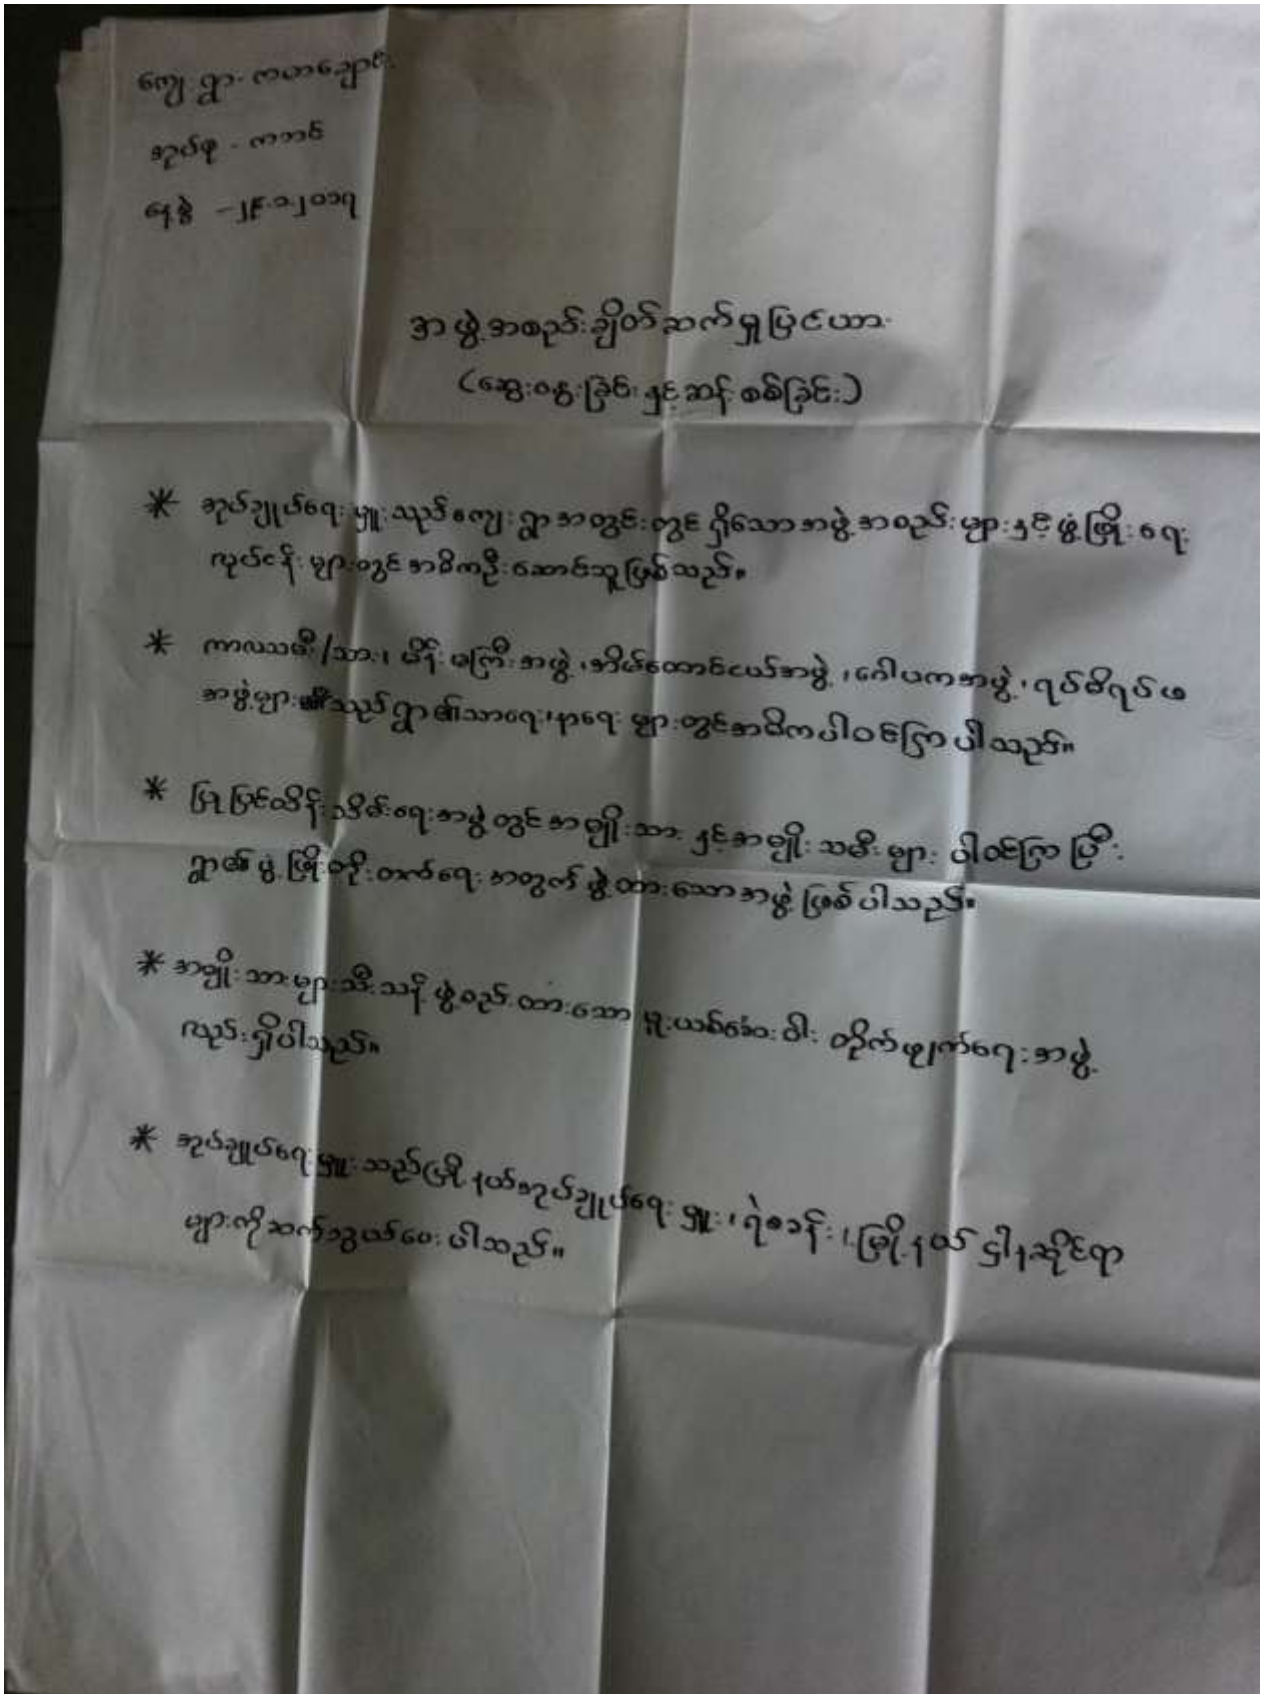 ကျေးရွာ - ကဟာချောင်း
အုပ်စု - ကဘင်
နေ့စွဲ - ၂၉.၁.၂၀၁၇
အဖွဲ့အစည်းချိတ်ဆက်မှုပြင်ယား
(ဆွေးနွေးခြင်းနှင့်ဆန်းစစ်ခြင်း)
* အုပ်ချုပ်ရေးမှူးသည်ကျေးရွာအတွင်းတွင်ရှိသောအဖွဲ့အစည်းများနှင့်ဖွံ့ဖြိုးရေး
လုပ်ငန်းများတွင်အဓိကဦးဆောင်သူဖြစ်သည်။
* ကာလသမီး/သား၊ မိန်းမကြီးအဖွဲ့၊အိမ်ထောင်ငယ်အဖွဲ့၊ဂေါပကအဖွဲ့၊ရပ်မိရပ်ဖ
အဖွဲ့များသည်ရွာ၏သာရေး၊နာရေးများတွင်အဓိကပါဝင်ကြပါသည်။
* ပြုပြင်ထိန်းသိမ်းရေးအဖွဲ့တွင်အမျိုးသားနှင့်အမျိုးသမီးများ ပါဝင်ကြပြီး
ရွာ၏ဖွံ့ဖြိုးတိုးတက်ရေးအတွက်ဖွဲ့ထားသောအဖွဲ့ဖြစ်ပါသည်။
* အမျိုးသားများသီးသန့်ဖွဲ့စည်းထားသော မူးယစ်ဆေးဝါး တိုက်ဖျက်ရေးအဖွဲ့
လည်းရှိပါသည်။
* အုပ်ချုပ်ရေးမှူးသည်မြို့နယ်အုပ်ချုပ်ရေးမှူး၊ရဲစခန်း၊မြို့နယ်ဌါနဆိုင်ရာ
များကိုဆက်သွယ်ပေးပါသည်။